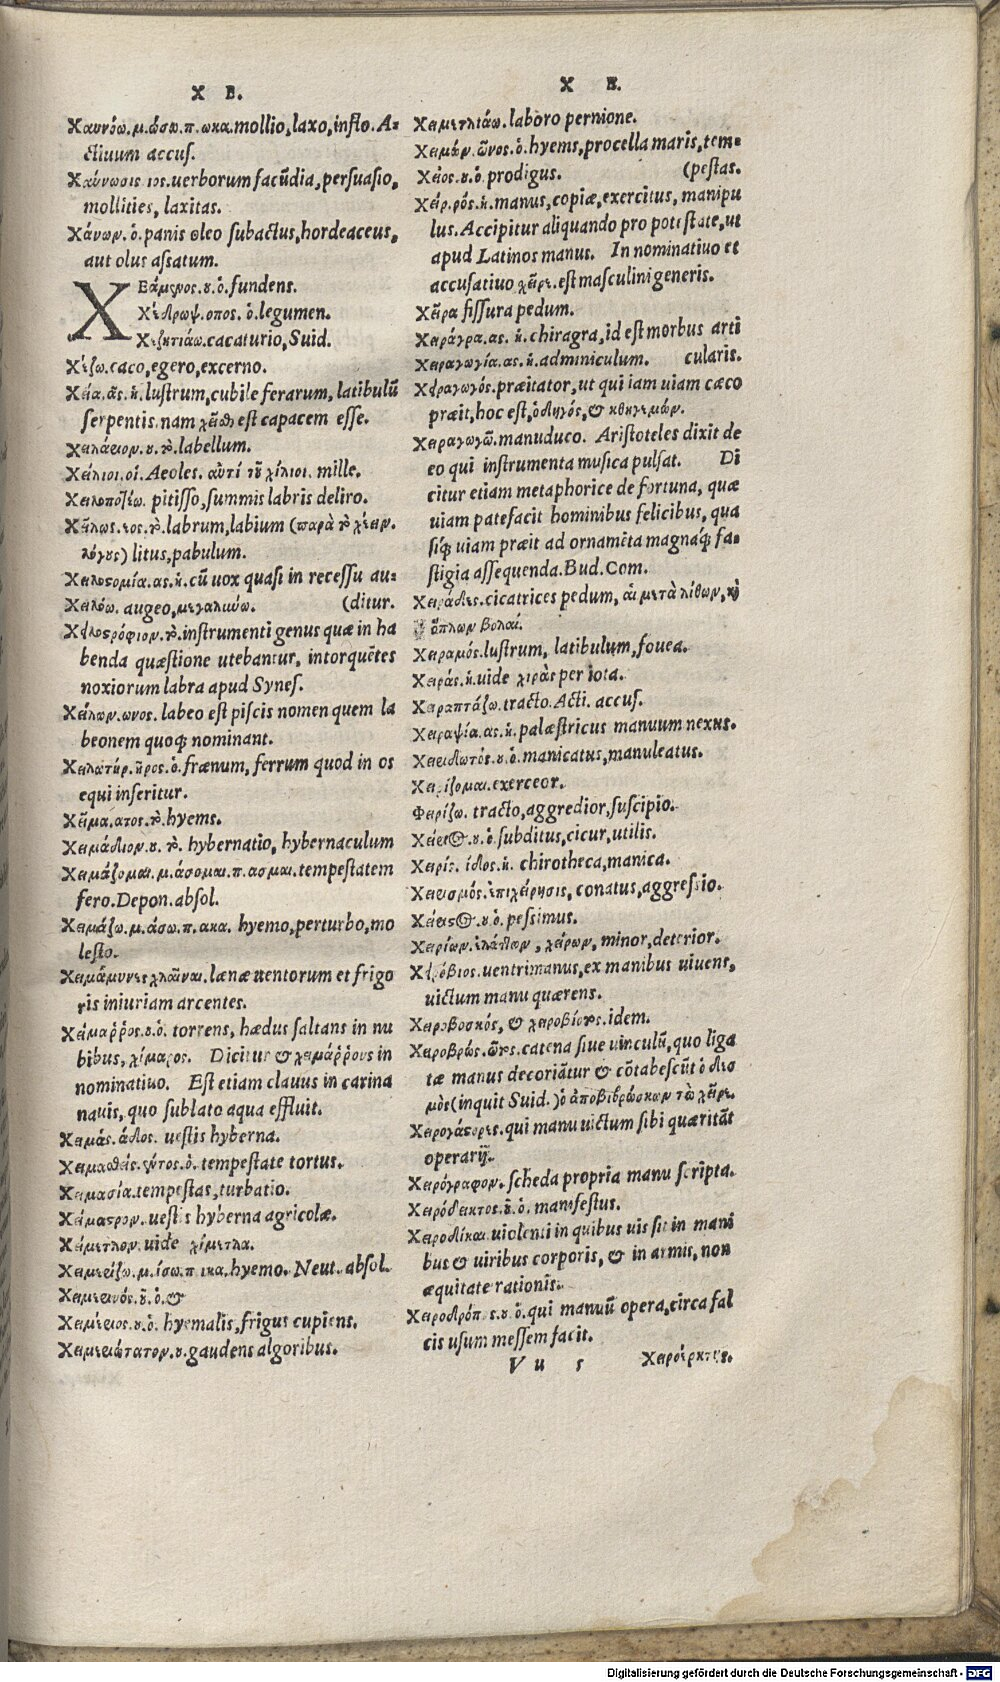 X E.
Χαυνόω.μ.ώσω.π.ωκα.mollio,laxo,inflo.A=
ctiuum accus.
Χαύνωσις ιος.uerborum facūdia,persuasio,
mollities, laxitas.
Χάνων.ὁ.panis oleo subactus,hordeaceus,
aut olus assatum.
ΧΕάμενος.ου.ὁ.fundens.
Χέδρωψ.οπος. ὁ.legumen.
Χεζητιάω.cacaturio,Suid.
Χέζω.caco,egero,excerno.
Χειά.ᾶς.ἡ.lustrum,cubile ferarum, latibulū
serpentis.nam χεῖσθαι est capacem esse.
Χειλάριον.ου.τὸ.labellum.
Χείλιοι.οἱ.Aeoles. αὐτὶ τοῦ χίλιοι. mille.
Χειλοποτέω. pitisso,summis labris deliro.
Χεῖλος.εος.τὸ.labrum,labium (παρὰ τὸ χέειν.
λόγους) litus,pabulum.
Χειλοστομία.ας.ἡ.cū uox quasi in recessu au=
Χειλόω. augeo,μεγαλινύω. (ditur.
Χειλοστρόφιον.τὸ.instrumenti genus quæ in ha
benda quæstione utebantur, intorquētes
noxiorum labra apud Synes.
Χείλων.ωνος. labeo est piscis nomen quem la
beonem quoq; nominant.
Χειλωτήρ.ῆρος.ὁ.frænum, ferrum quod in os
equi inseritur.
Χεῖμα.ατος.τὸ.hyems.
Χειμάδιον.ου. τὸ. hybernatio, hybernaculum
Χειμάζομαι.μ.άσομαι.π.ασμαι.tempestatem
fero.Depon.absol.
Χειμάζω.μ.άσω.π.ακα. hyemo,perturbo,mo
lesto.
Χειμάμυνες χλαῖναι.lænæ uentorum et frigo
ris iniuriam arcentes.
Χείμαῤῥος.ου.ὁ. torrens, hædus saltans in nu
bibus, χίμαρος. Dicitur & χειμάῤῥους in
nominatiuo. Est etiam clauus in carina
nauis, quo sublato aqua effluit.
Χειμάς.άδος. uestis hyberna.
Χειμασθείς.έντος.ὁ. tempestate tortus.
Χειμασία.tempestas,turbatio.
Χείμαστρον.uestis hyberna agricolæ.
Χείμετλον.uide χίμετλα.
Χειμερίζω.μ.ίσω.π.ικα.hyemo. Neut. absol.
Χειμερινός.οῦ.ὁ.&
Χειμέριος.ου.ὁ. hyemalis,frigus cupiens.
Χειμεριώτατον.ου.gaudens algoribus.
X E.
Χειμετλιάω.laboro pernione.
Χειμών.ῶνος.ὁ.hyems,procella maris,tem=
Χεῖος.ου.ὁ.prodigus. (pestas.
Χείρ.ρός.ἡ.manus,copiæ,exercitus, manipu
lus.Accipitur aliquando pro potestate,ut
apud Latinos manus. In nominatiuo et
accusatiuo χεῖρε.est masculini generis.
Χεῖρα fissura pedum.
Χειράγρα.ας. ἡ.chiragra,id est morbus arti
Χειραγωγία.ας.ἡ.adminiculum. cularis.
Χειραγωγός.præitator,ut qui iam uiam cæco
præit,hoc est,ὁδηγός,& καθηγεμών.
Χειραγωγῶ.manuduco. Aristoteles dixit de
eo qui instrumenta musica pulsat. Di
citur etiam metaphorice de fortuna, quæ
uiam patefacit hominibus felicibus, qua
siq; uiam præit ad ornamēta magnaq; fa=
stigia assequenda.Bud.Com.
Χειράδες.cicatrices pedum, αἱ μετὰ λίθων,καὶ
ὅπλων βολαί.
Χειραμός.lustrum, latibulum,fouea.
Χειράς.ἡ.uide χιρὰς per iota.
Χειραπτάζω.tracto.Acti. accus.
Χειραψία.ας.ἡ.palæstricus manuum nexus.
Χειριδωτός.ου.ὁ.manicatus,manuleatus.
Χειρίζομαι.exerceor.
Φειρίζω. tracto,aggredior,suscipio.
Χείριος.ου.ὁ.subditus,cicur,utilis.
Χειρίς. ίδος.ἡ. chirotheca,manica.
Χειρισμός.ἐπιχείρησις, conatus,aggressio.
Χείριστος.ου.ὁ.pessimus.
Χειρίων.ἐλάττων, χείρων, minor,deterior.
Χειρόβιος.uentrimanus,ex manibus uiuens,
uictum manu quærens.
Χειροβοσκός, & χειροβίοτος.idem.
Χειροβρώς.ῶτος.catena siue uinculū,quo liga
tæ manus decoriātur & cōtabescūt ὁ δεσ
μὸς(inquit Suid.)ὁ ἀποβιβρώσκων τὼ χεῖρε.
Χειρογάστορες.qui manu uictum sibi quæritāt
operarij.
Χειρόγραφον. scheda propria manu scripta.
Χειρόδεικτος.οῦ.ὁ. manifestus.
Χειροδίκαι.uiolenti in quibus uis sit in mani
bus & uiribus corporis, & in armis, non
æquitate rationis.
Χειροδρόπος.ου.ὁ.qui manuū opera,circa fal
cis usum messem facit.
V u 5 Χειροέρκτης.
Digitalisierung gefördert durch die Deutsche Forschungsgemeinschaft - DFG